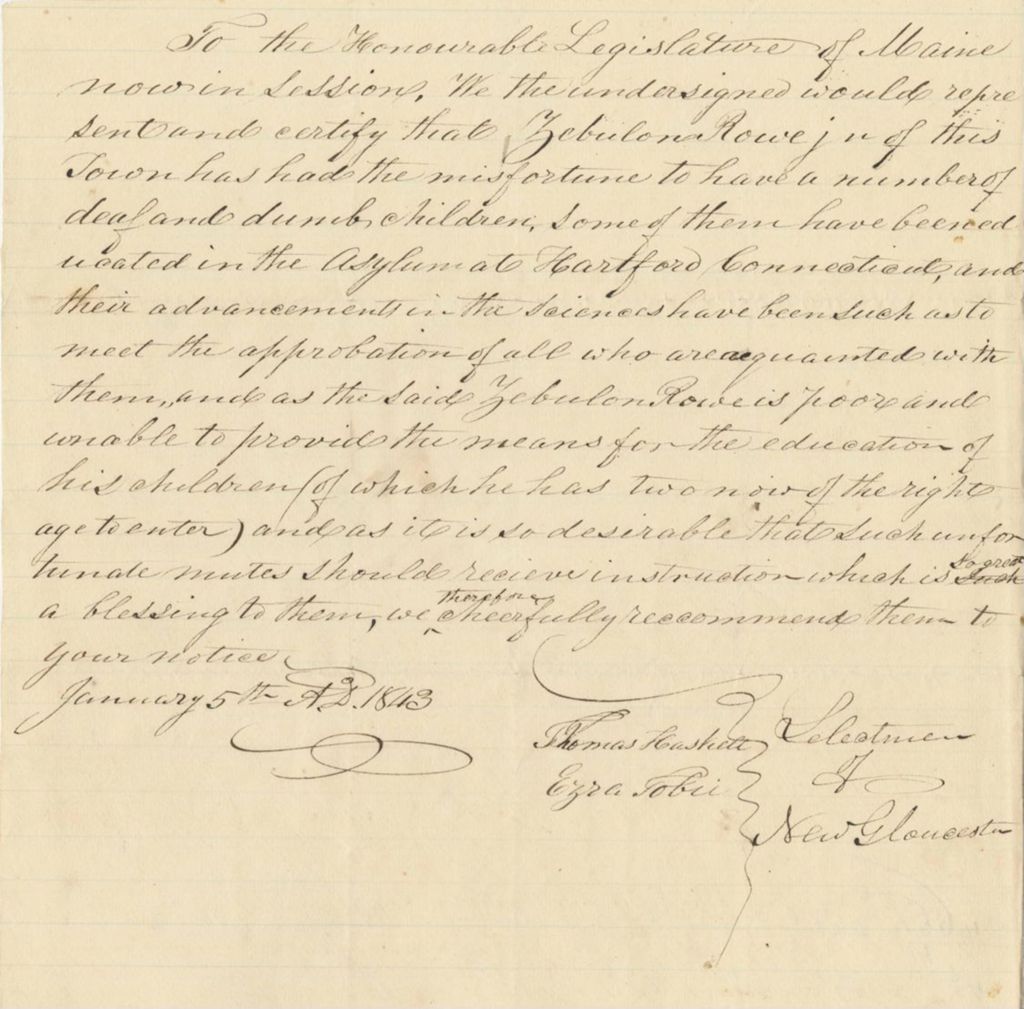 To the Honourable Legislature of Maine
now in Session, We the undersigned would repre
sent and certify that Zebulon Rowe jn of this
Town has had the misfortune to have a number of
deaf and dumb children, some of them have been ed
ucated in the Asylum at Hartford Connecticut, and
their advancements in the Sciences have been such as to
meet the approbation of all who are acquainted with
them, and as the said Zebulon Rowe is poor and
unable to provide the means for the education of
his children (of which he has two now of the right
age to enter) and as it is so desirable that such unfor
tunate mutes should recieve instruction which is so great
a blessing to them, we therefore cheerfully reccommend them to
your notice
January 5th A.D. 1843
Thomas Haskell
Ezra Tobie
Selectmen
of
New Gloucester